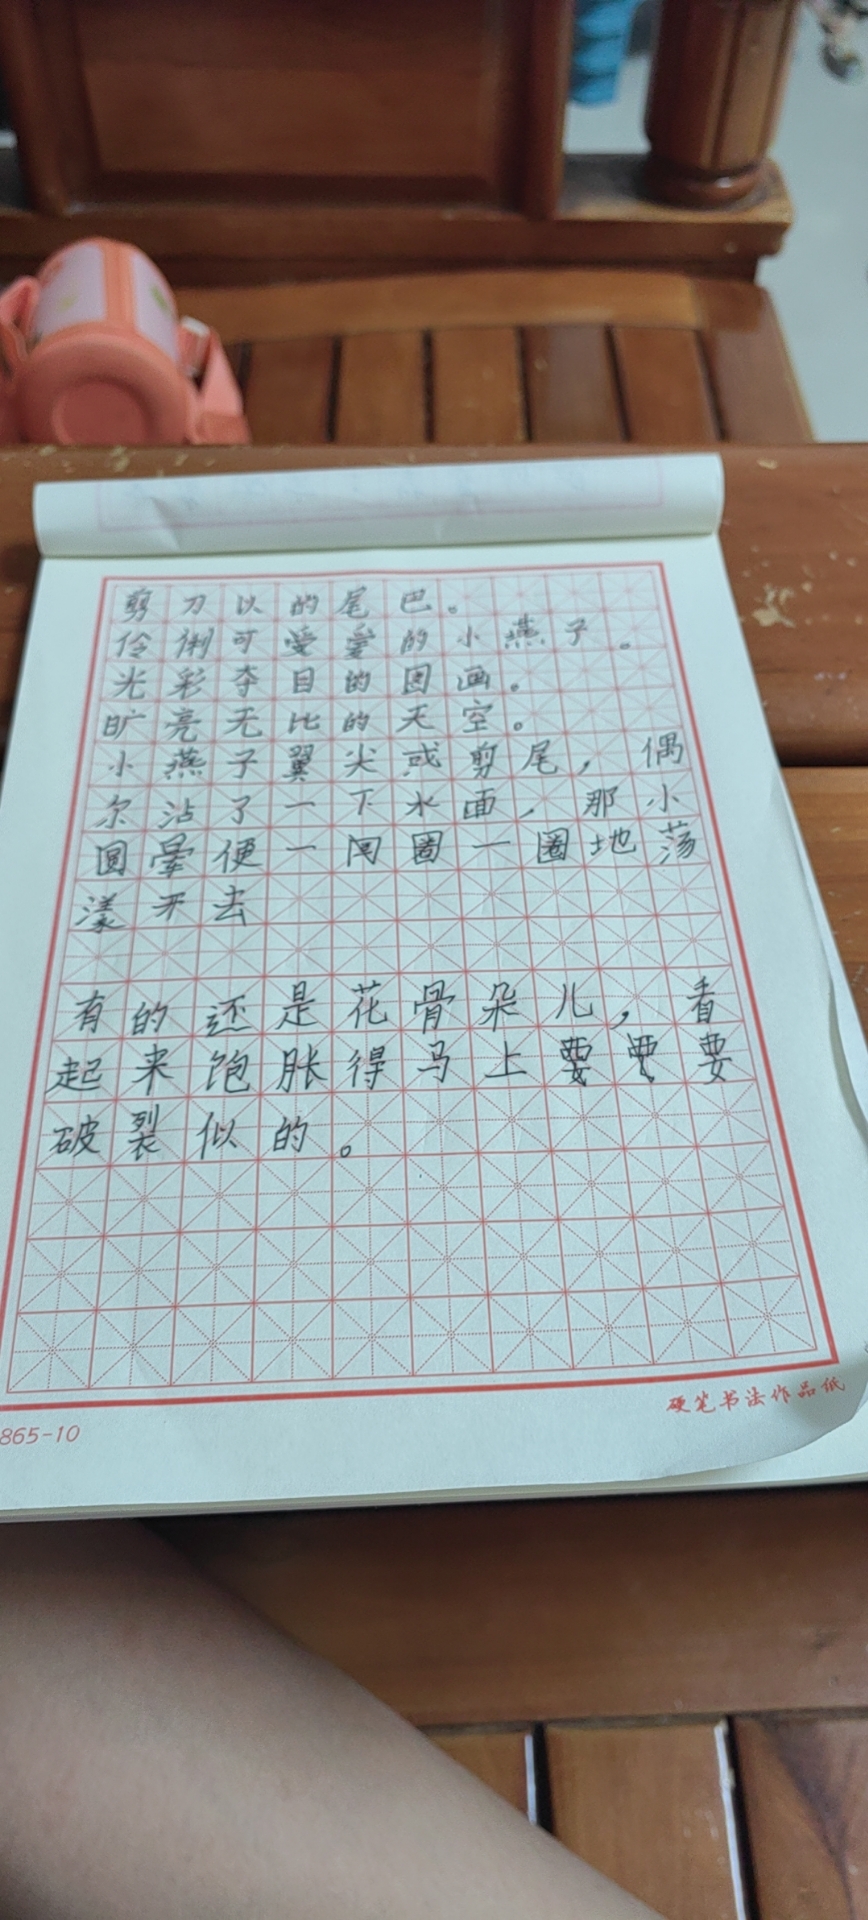 剪刀以的尾巴。
伶俐可爱爱的小燕子。
光彩夺目的图画。
旷亮无比的天空。
小燕子翼尖或剪尾，偶
尔沾了一下水面，那小
圆晕便一圈圈一圈地荡
漾开去
有的还是花骨朵儿，看
起来饱胀得马上要要要
破裂似的。
硬笔书法作品纸
865-10